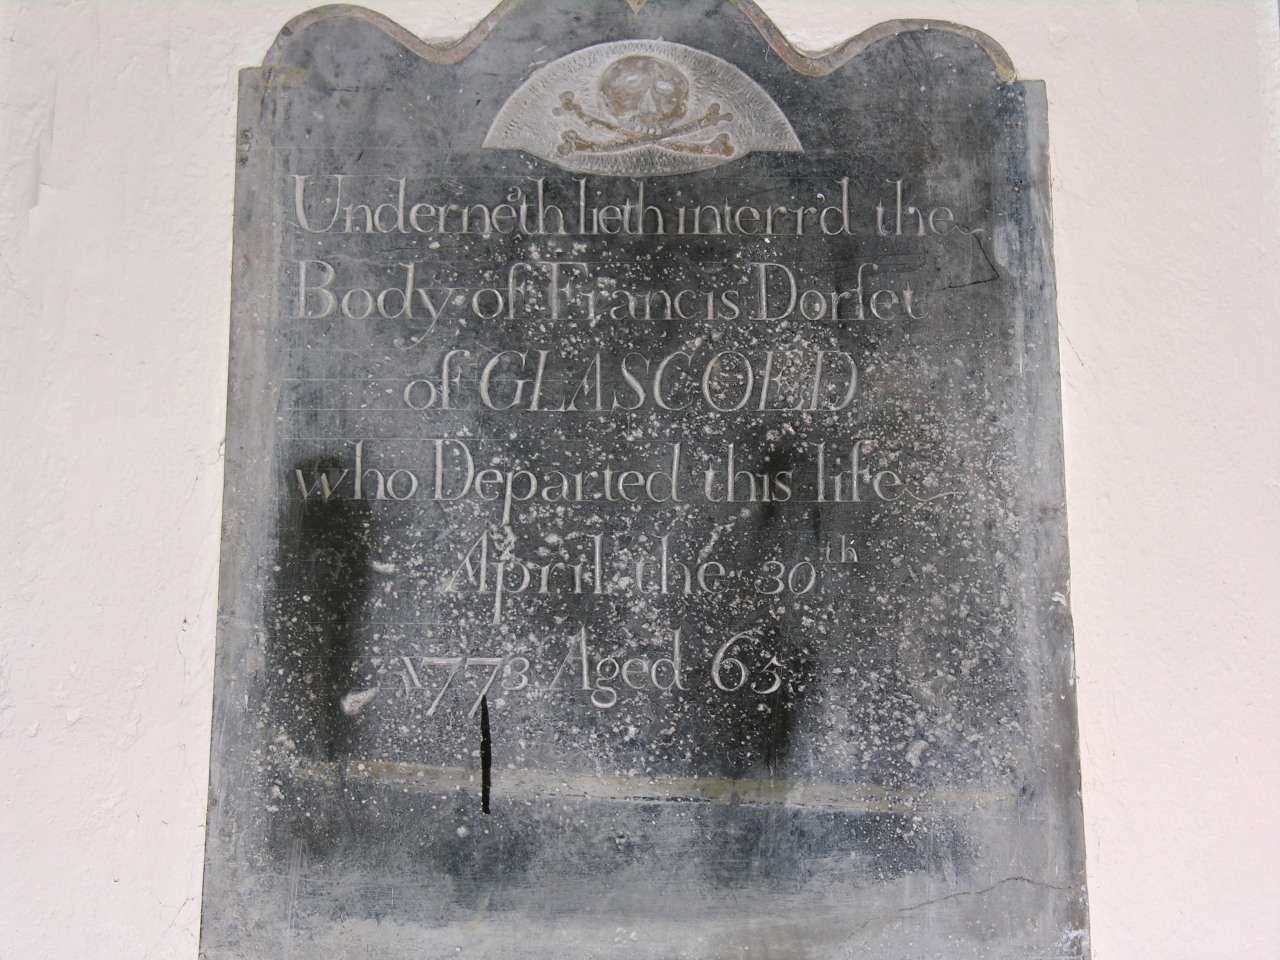 Underneath lieth interr'd the
Body of Francis Dorſet
of GLASCOED
who Departed this life
April the 30th
1773 Aged 65